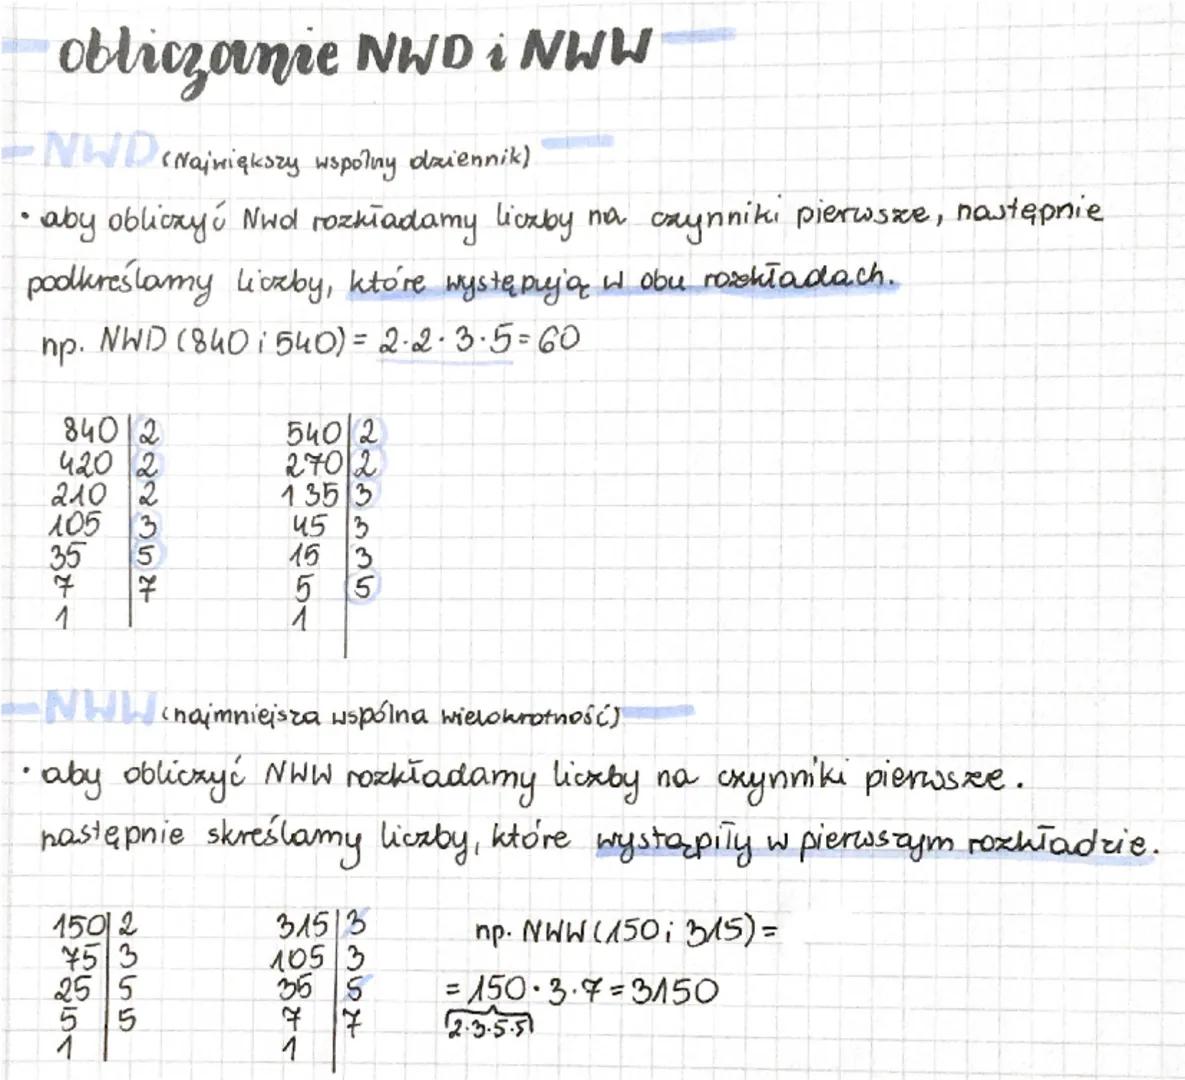 obliczanie NWD i NWW
NWD (Największy wspólny dziennik)
• aby obliczyć Nwd rozkładamy liczby na czynniki pierwsze, następnie
podkreślamy liczby, które występują w obu rozkładach.
np. NWD (840 i 540) = 2·2·3·5=60
840|2 540|2
420|2 270|2
210|2 135|3
105|3 45|3
35|5 15|3
7|7 5|5
1 1
NWW (najmniejsza wspólna wielokrotność)
• aby obliczyć NWW rozkładamy liczby na czynniki pierwsze.
następnie skreślamy liczby, które wystąpiły w pierwszym rozkładzie.
150|2 315|3 np. NWW (150 i 315) =
75|3 105|3
25|5 35|5 = 150·3·7=3150
5|5 7|7 2·3·5·5
1 1